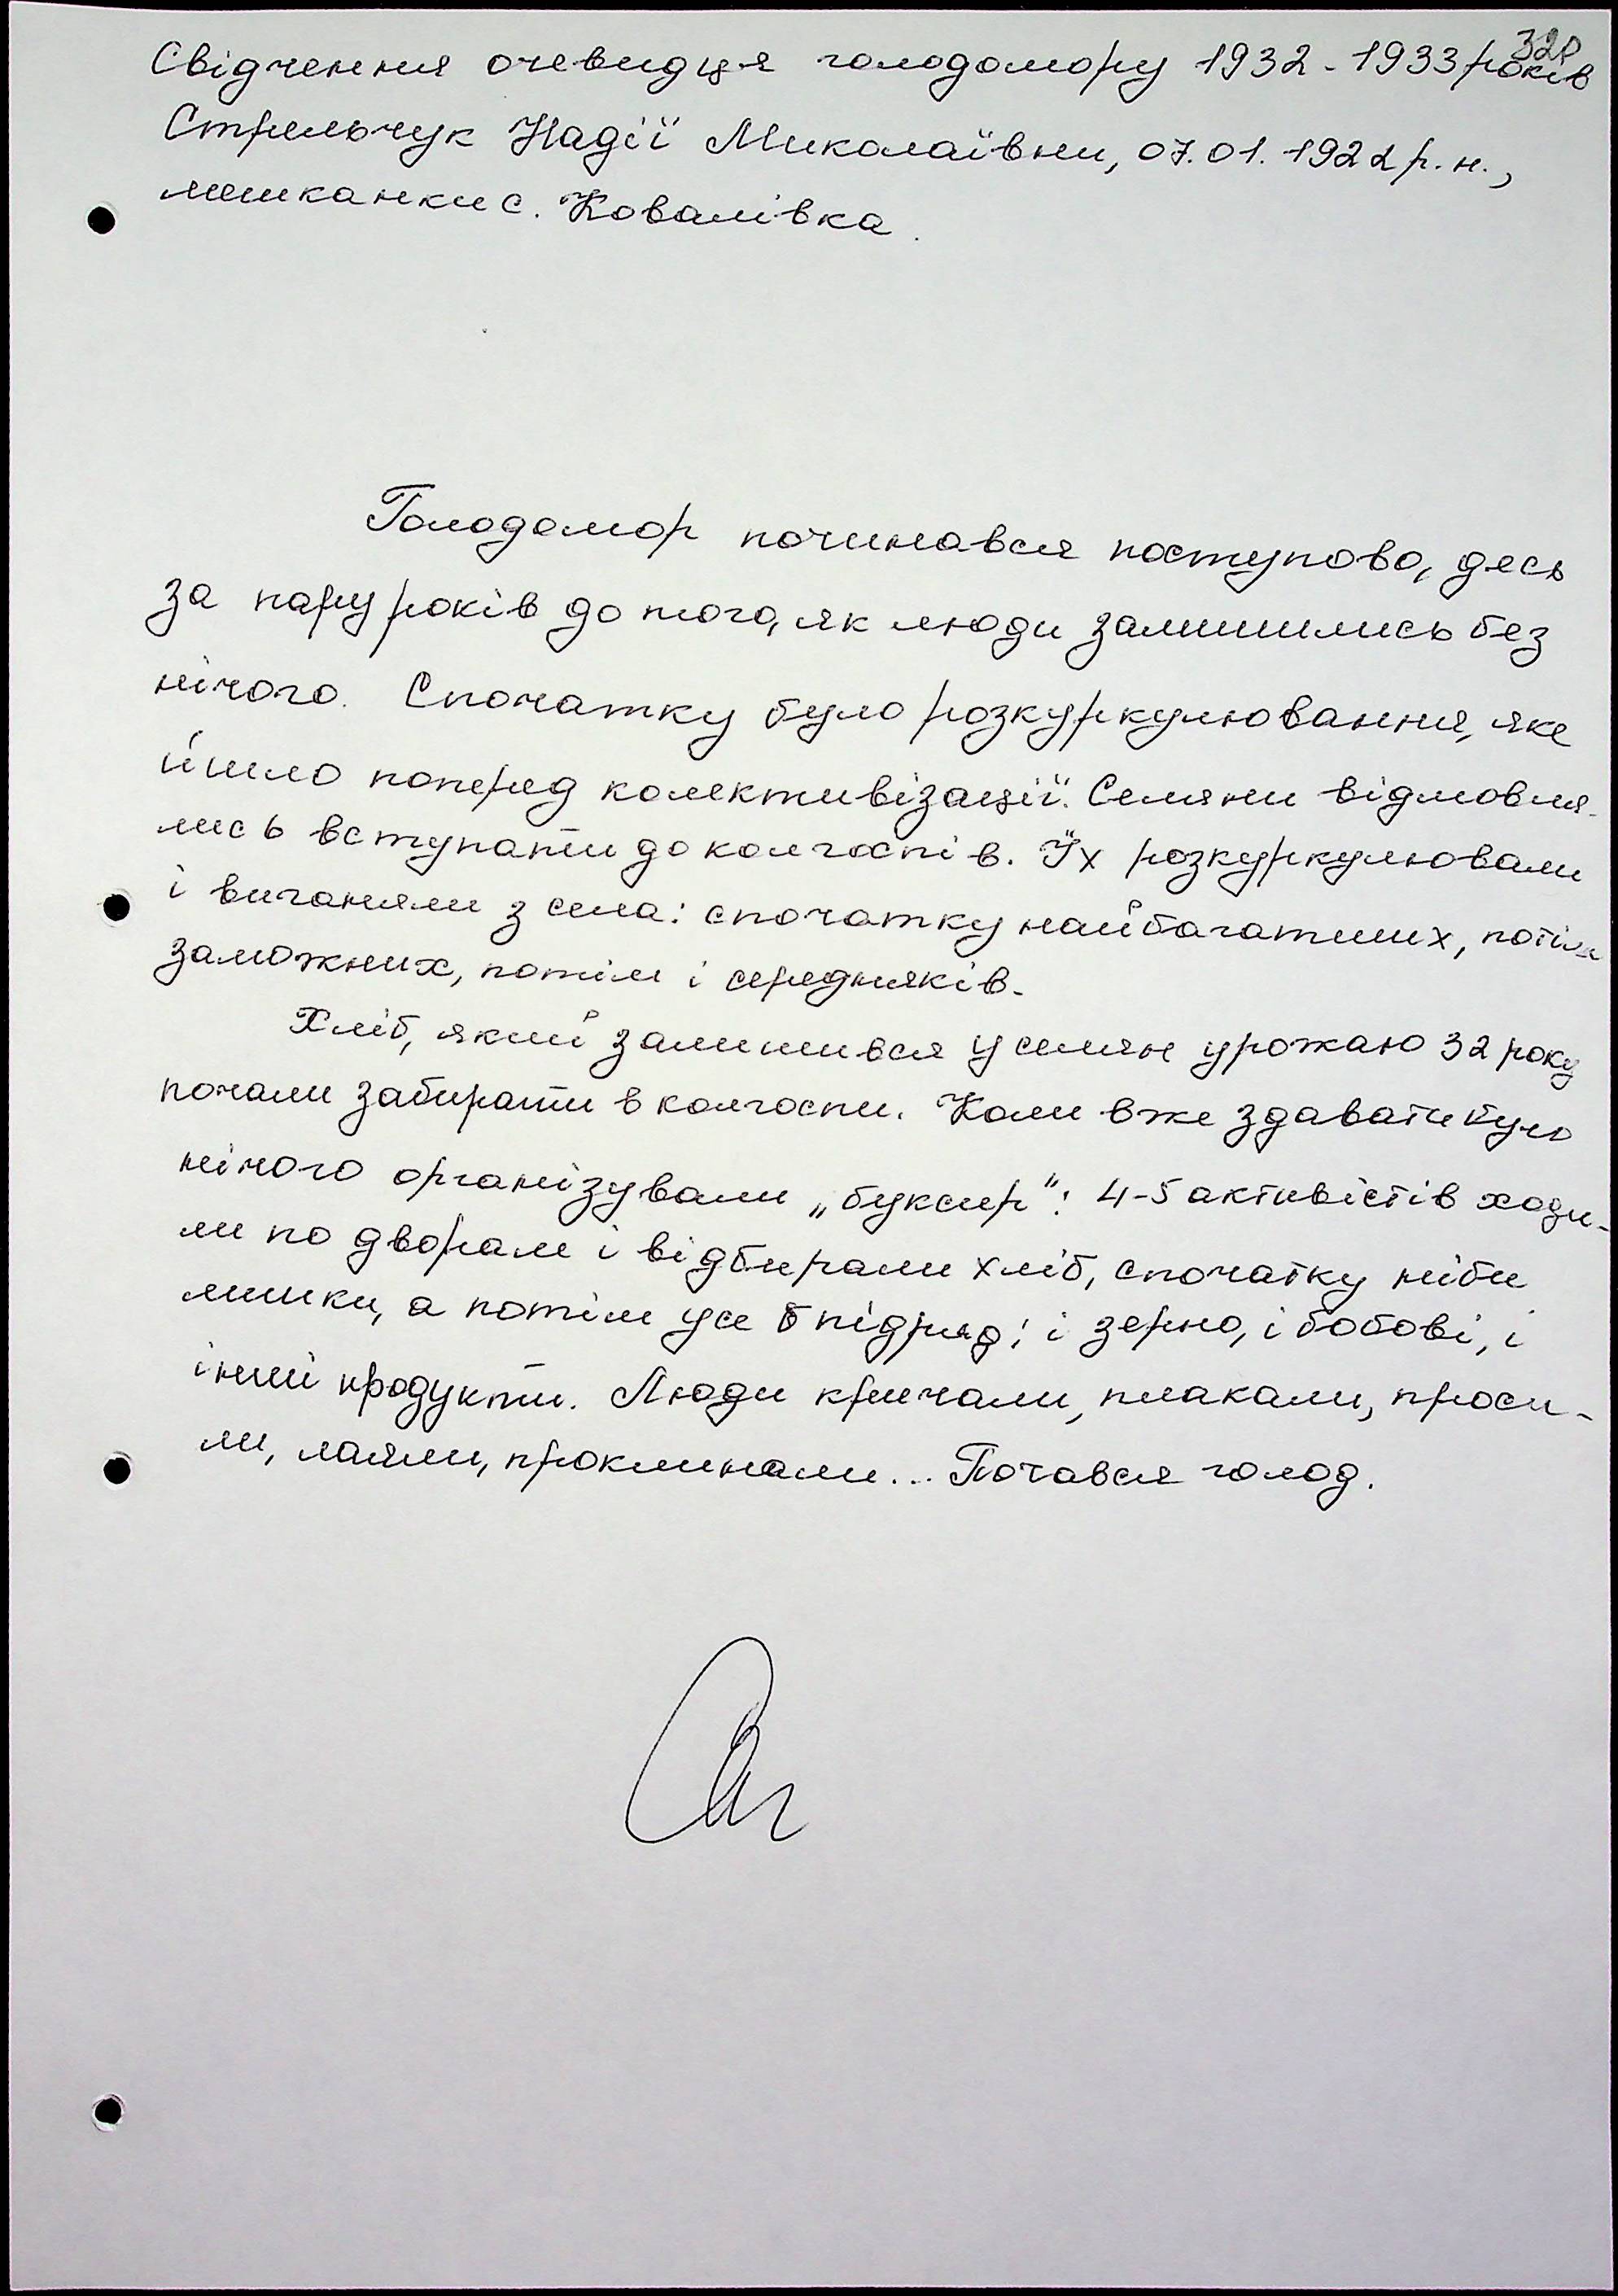 320
Свідчення очевидця голодомору 1932-1933 років
Стрельчук Надії Миколаївни, 07.01.1922 р.н.,
мешканки с. Ковалівка.
Голодомор починався поступово, десь
за пару років до того, як люди залишились без
нічого. Спочатку було розкуркулювання, яке
йшло поперед колективізації. Селяни відмовля-
лись вступати до колгоспів. Їх розкуркулювали
і виганяли з села: спочатку найбагатших, потім
заможних, потім і середняків.
Хліб, який залишився у селян урожаю 32 року
почали забирати в колгоспи. Коли вже здавати було
нічого організували „буксир": 4-5 активістів ходи-
ли по дворам і відбирали хліб, спочатку ніби
лишки, а потім усе підряд: і зерно, і бобові, і
інші продукти. Люди кричали, плакали, проси-
ли, лаяли, проклинали... Почався голод.